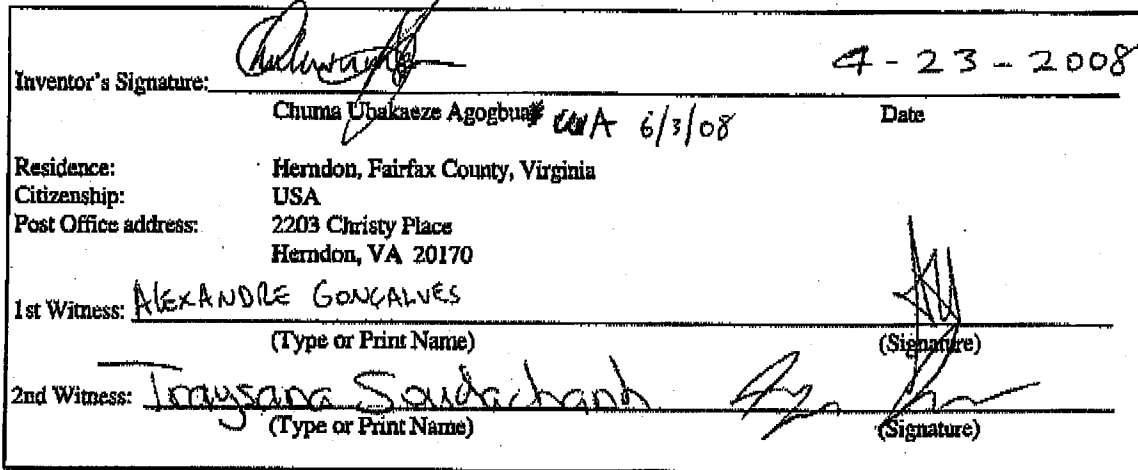 Inventor's Signature: 4-23-2008
Chuma Ubakaeze Agogbua CUA 6/3/08 Date
Residence: Herndon, Fairfax County, Virginia
Citizenship: USA
Post Office address: 2203 Christy Place
Herndon, VA 20170
1st Witness: ALEXANDRE GONÇALVES
(Type or Print Name) (Signature)
2nd Witness: Traysana Soudachanh
(Type or Print Name) (Signature)